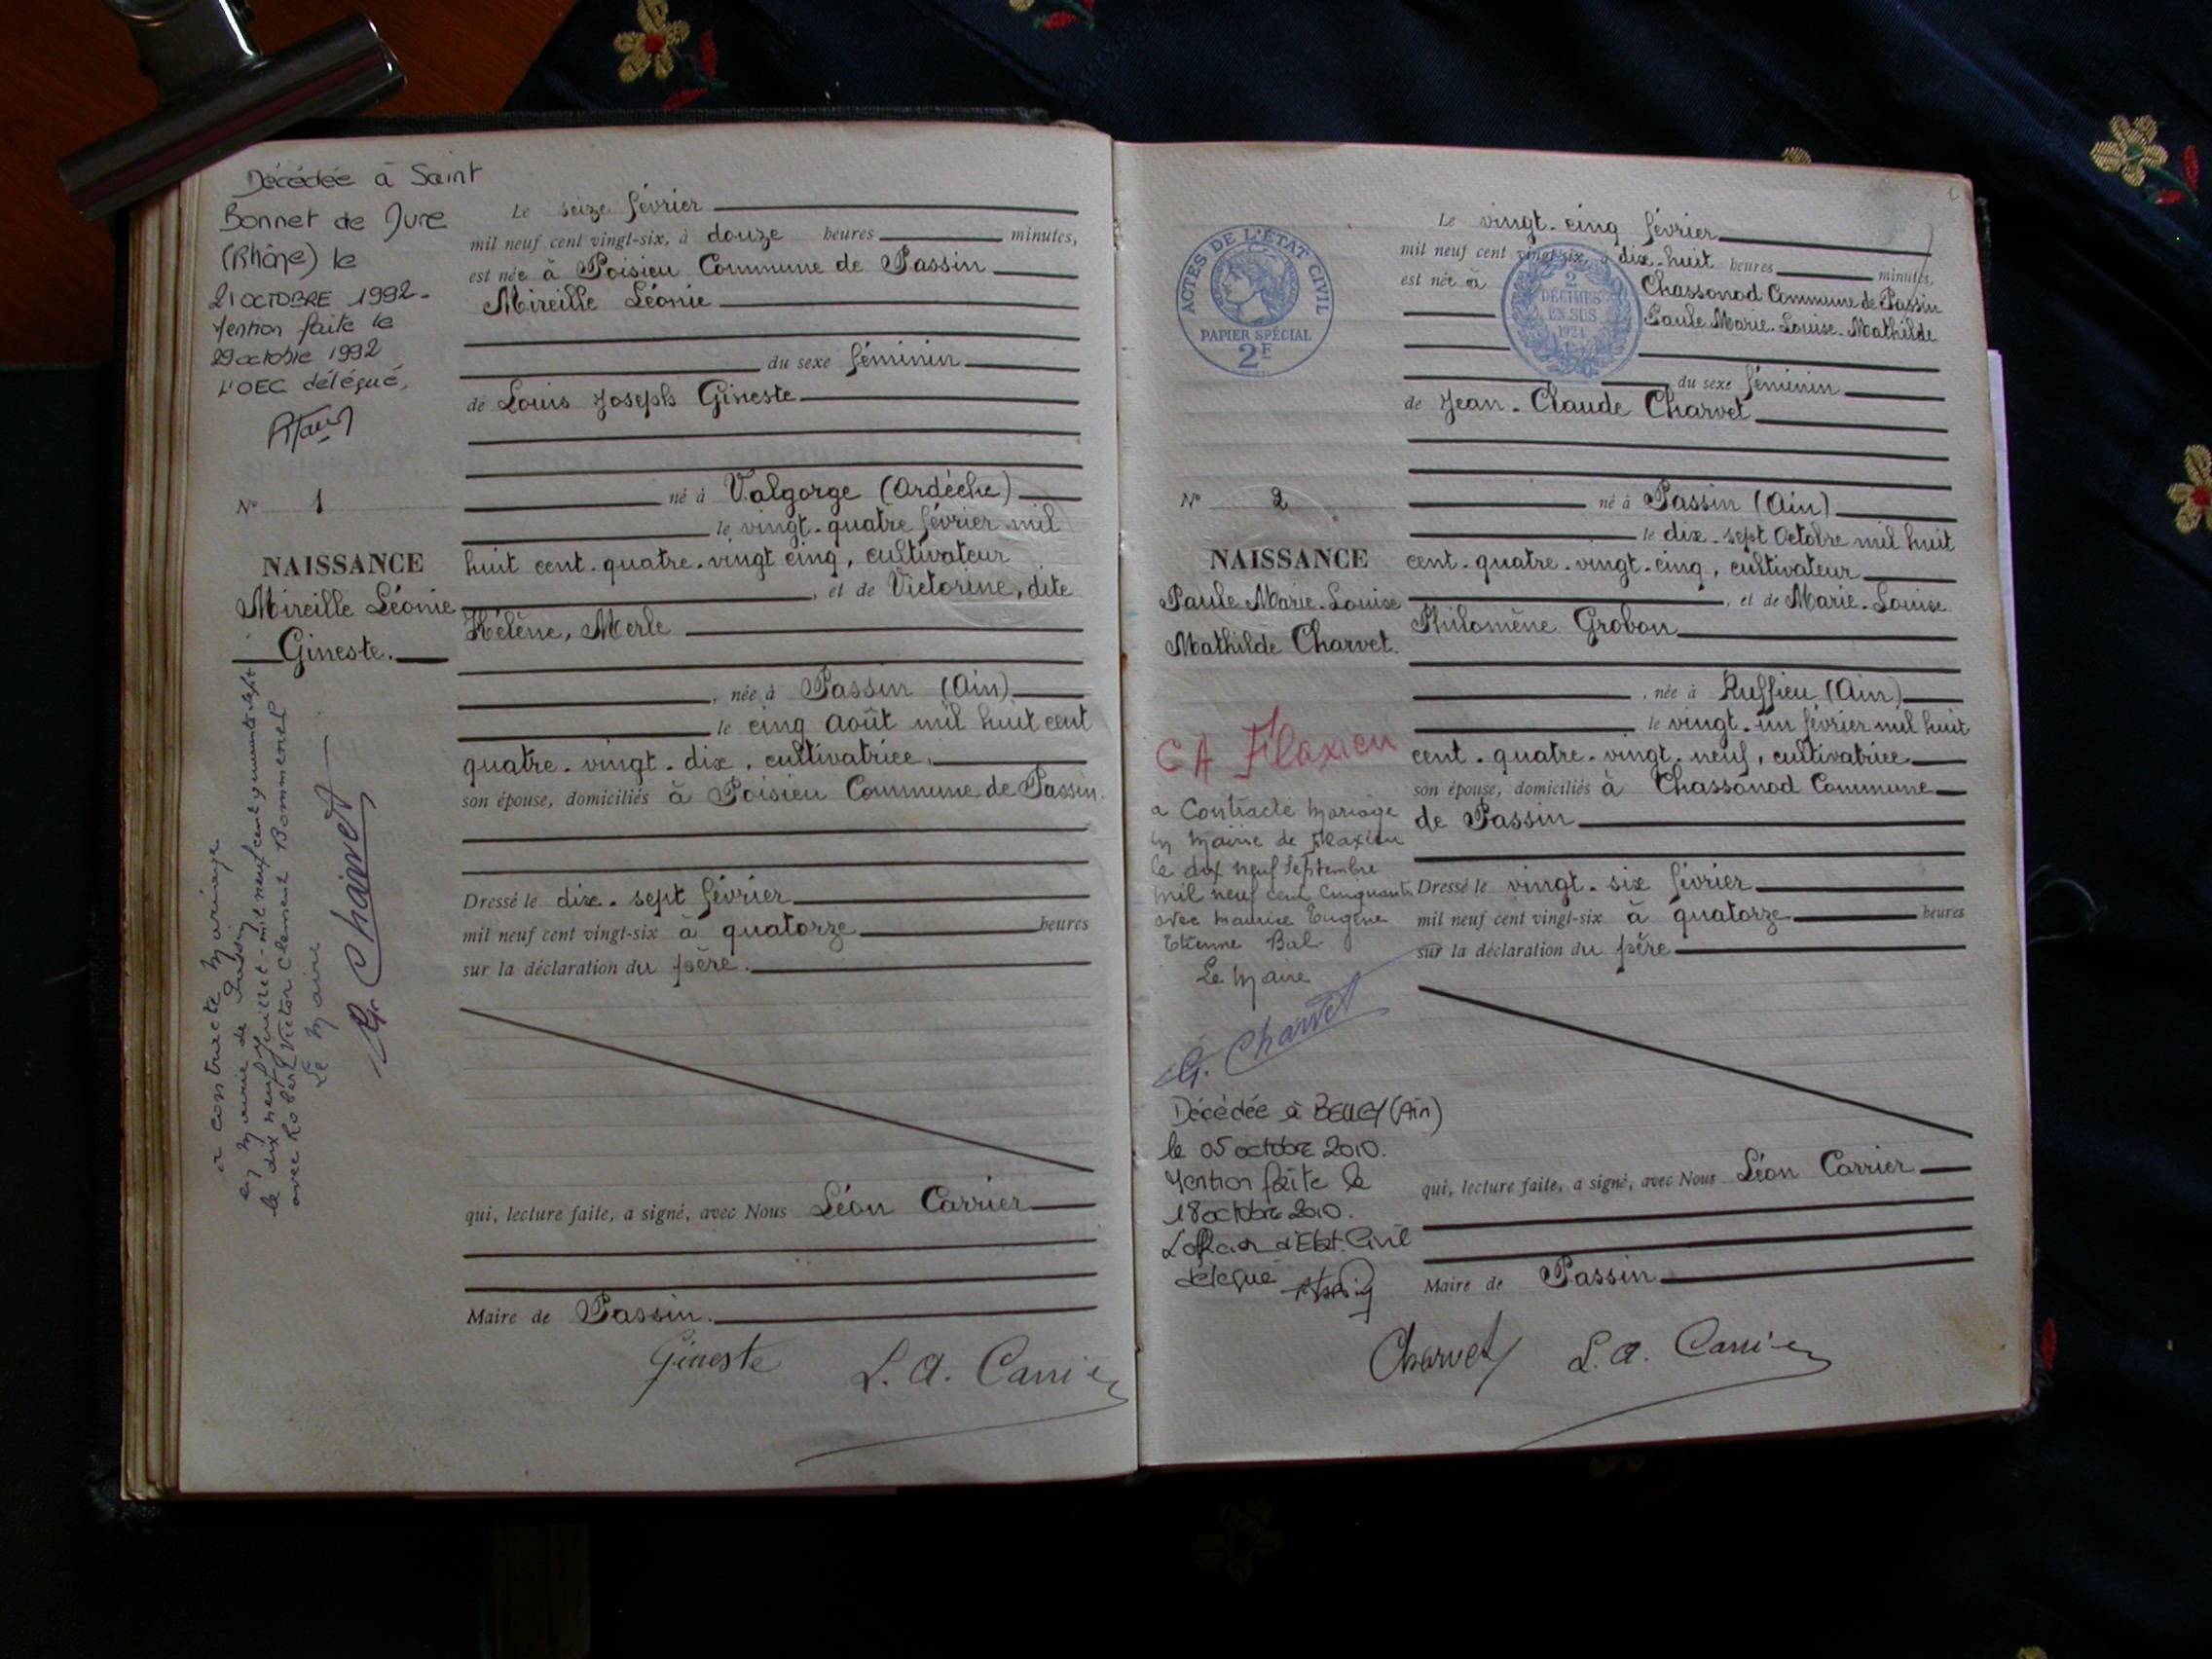 Décédée à Saint
Bonnet de Mure
(Rhône) le
21 OCTOBRE 1992.
Mention faite le
29 octobre 1992
L'OEC délégué,
N° 1
NAISSANCE
Mireille Léonie
Gineste.
a contracté Mariage
en Mairie de Passin
le dix neuf juillet mil neuf cent quarante sept
avec Robert Victor Clément Bommenel
Le Maire
G. Charvet
Le seize février
mil neuf cent vingt-six, à douze heures minutes,
est née à Poisieu Commune de Passin
Mireille Léonie
du sexe féminin
de Louis Joseph Gineste
né à Valgorge (Ardèche)
le vingt-quatre février mil
huit cent-quatre-vingt cinq, cultivateur
, et de Victorine, dite
Hélène, Merle
, née à Passin (Ain)
le cinq Août mil huit cent
quatre-vingt-dix, cultivatrice,
son épouse, domiciliés à Poisieu Commune de Passin.
Dressé le dix-sept février
mil neuf cent vingt-six à quatorze heures
sur la déclaration du père.
qui, lecture faite, a signé, avec Nous Léon Carrier
Maire de Passin.
Gineste L. A. Carrier
ACTES DE L'ÉTAT CIVIL
PAPIER SPÉCIAL
2F
2
DÉCIMES
EN SUS
1924
N° 2
NAISSANCE
Paule Marie-Louise
Mathilde Charvet.
CA Flaxieu
a Contracté Mariage
en Mairie de Flaxieu
le dix neuf Septembre
mil neuf cent cinquante
avec Maurice Eugène
Etienne Bal.
Le Maire
G. Charvet
Décédée à BELLEY (Ain)
le 05 octobre 2010.
Mention faite le
18 octobre 2010.
L'officier d'Etat-Civil
délégué
Le vingt-cinq février
mil neuf cent vingt-six, à dix-huit heures minutes,
est née à Chassonod Commune de Passin
Paule Marie-Louise-Mathilde
du sexe féminin
de Jean-Claude Charvet
né à Passin (Ain)
le dix-sept Octobre mil huit
cent-quatre-vingt-cinq, cultivateur
, et de Marie-Louise
Philomène Grobon
, née à Ruffieu (Ain)
le vingt-un février mil huit
cent-quatre-vingt-neuf, cultivatrice
son épouse, domiciliés à Chassonod Commune
de Passin
Dressé le vingt-six février
mil neuf cent vingt-six à quatorze heures
sur la déclaration du père
qui, lecture faite, a signé, avec Nous Léon Carrier
Maire de Passin
Charvet L. A. Carrier